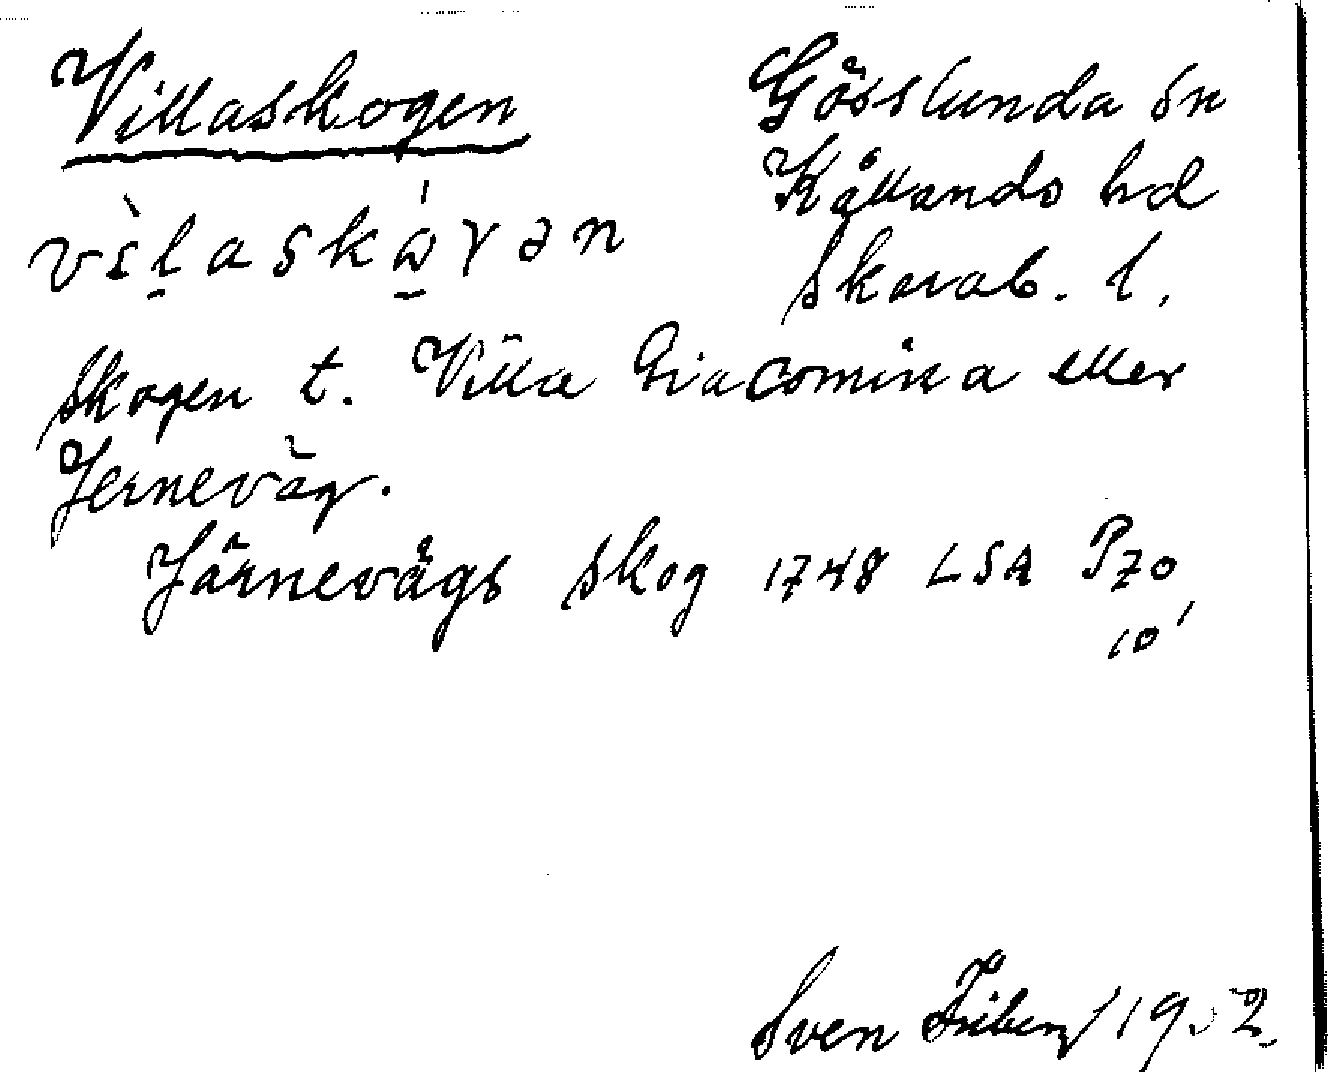 Villaskogen
Gösslunda sn
Kållands hd
Skarab. l.
vìlaskɷ́γən
Skogen t. Villa Giacomina eller
Jerneväg.
Järnevägs skog 1748 LSA P70
10
Sven Friberg 1952